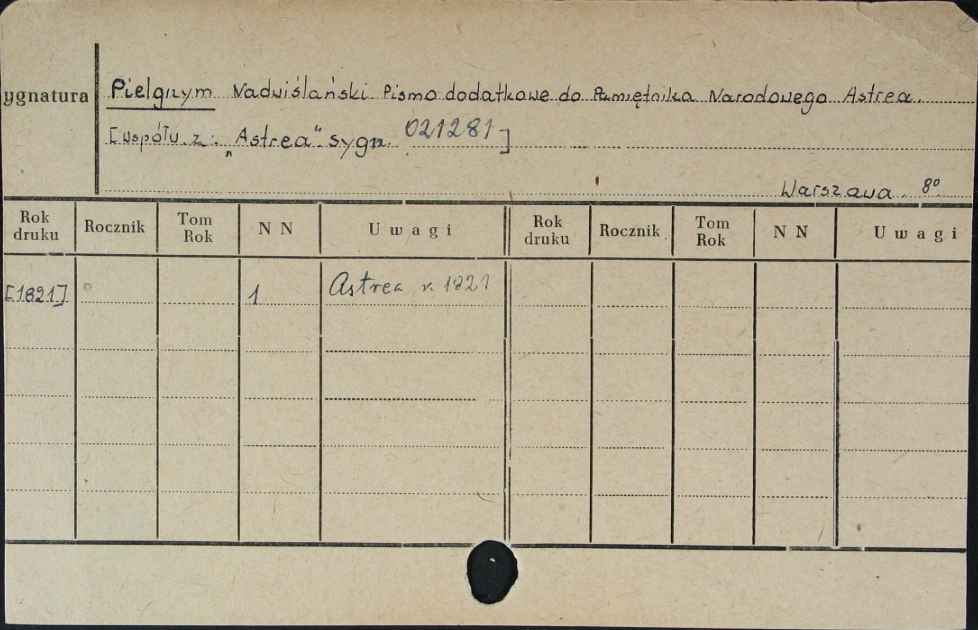 ygnatura Pielgrzym Nadwiślański Pismo dodatkowe do Pamiętnika Narodowego Astrea.
[Współw. z: „Astrea" sygn. 021281]
Warszawa. 8º
Rok druku Rocznik Tom Rok N N Uwagi Rok druku Rocznik Tom Rok N N Uwagi
[1821] 1 Astrea r. 1821